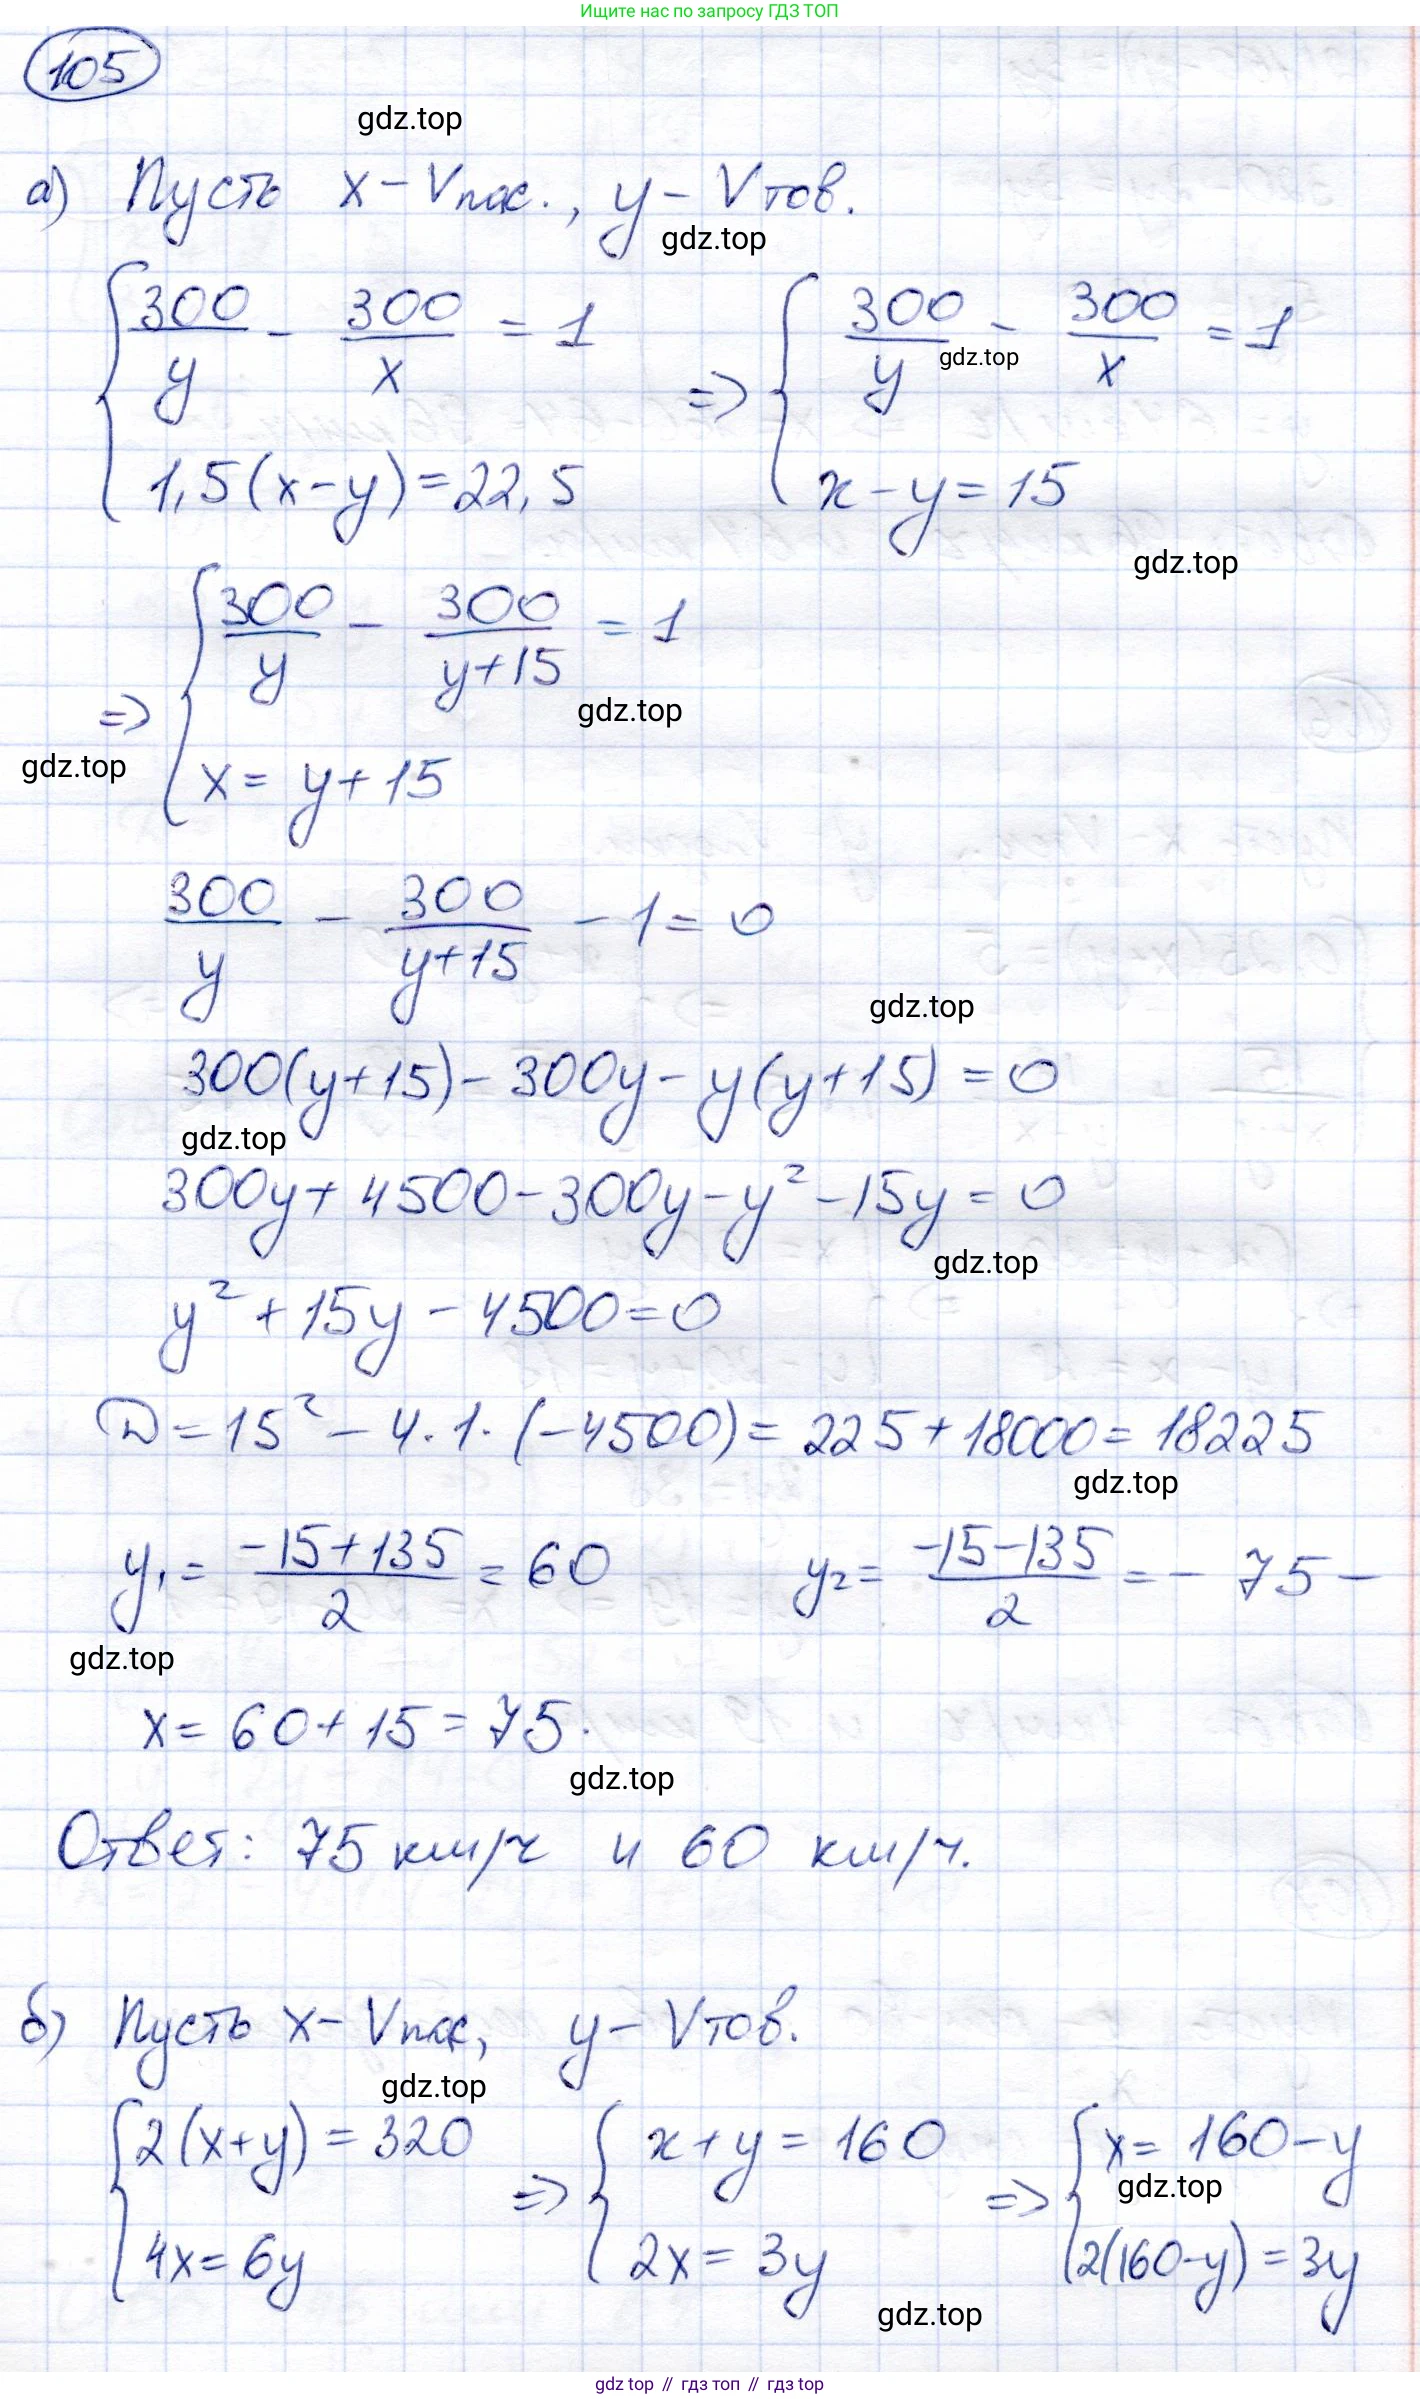 Ищите нас по запросу ГДЗ ТОП
105
gdz.top
а) Пусть x - Vпас., y - Vтов.
gdz.top
{ 300/y - 300/x = 1 => { 300/y - 300/x = 1
gdz.top
1,5(x-y) = 22,5 x - y = 15
gdz.top
=> { 300/y - 300/(y+15) = 1
gdz.top
gdz.top
x = y + 15
300/y - 300/(y+15) - 1 = 0
gdz.top
300(y+15) - 300y - y(y+15) = 0
gdz.top
300y + 4500 - 300y - y² - 15y = 0
gdz.top
y² + 15y - 4500 = 0
D = 15² - 4·1·(-4500) = 225 + 18000 = 18225
gdz.top
y₁ = (-15+135)/2 = 60 y₂ = (-15-135)/2 = - 75 -
gdz.top
x = 60 + 15 = 75.
gdz.top
Ответ: 75 км/ч и 60 км/ч.
б) Пусть x - Vпас, y - Vтов.
gdz.top
{ 2(x+y) = 320 => { x + y = 160 => { x = 160 - y
gdz.top
4x = 6y 2x = 3y 2(160-y) = 3y
gdz.top
gdz top // гдз топ // гдз top